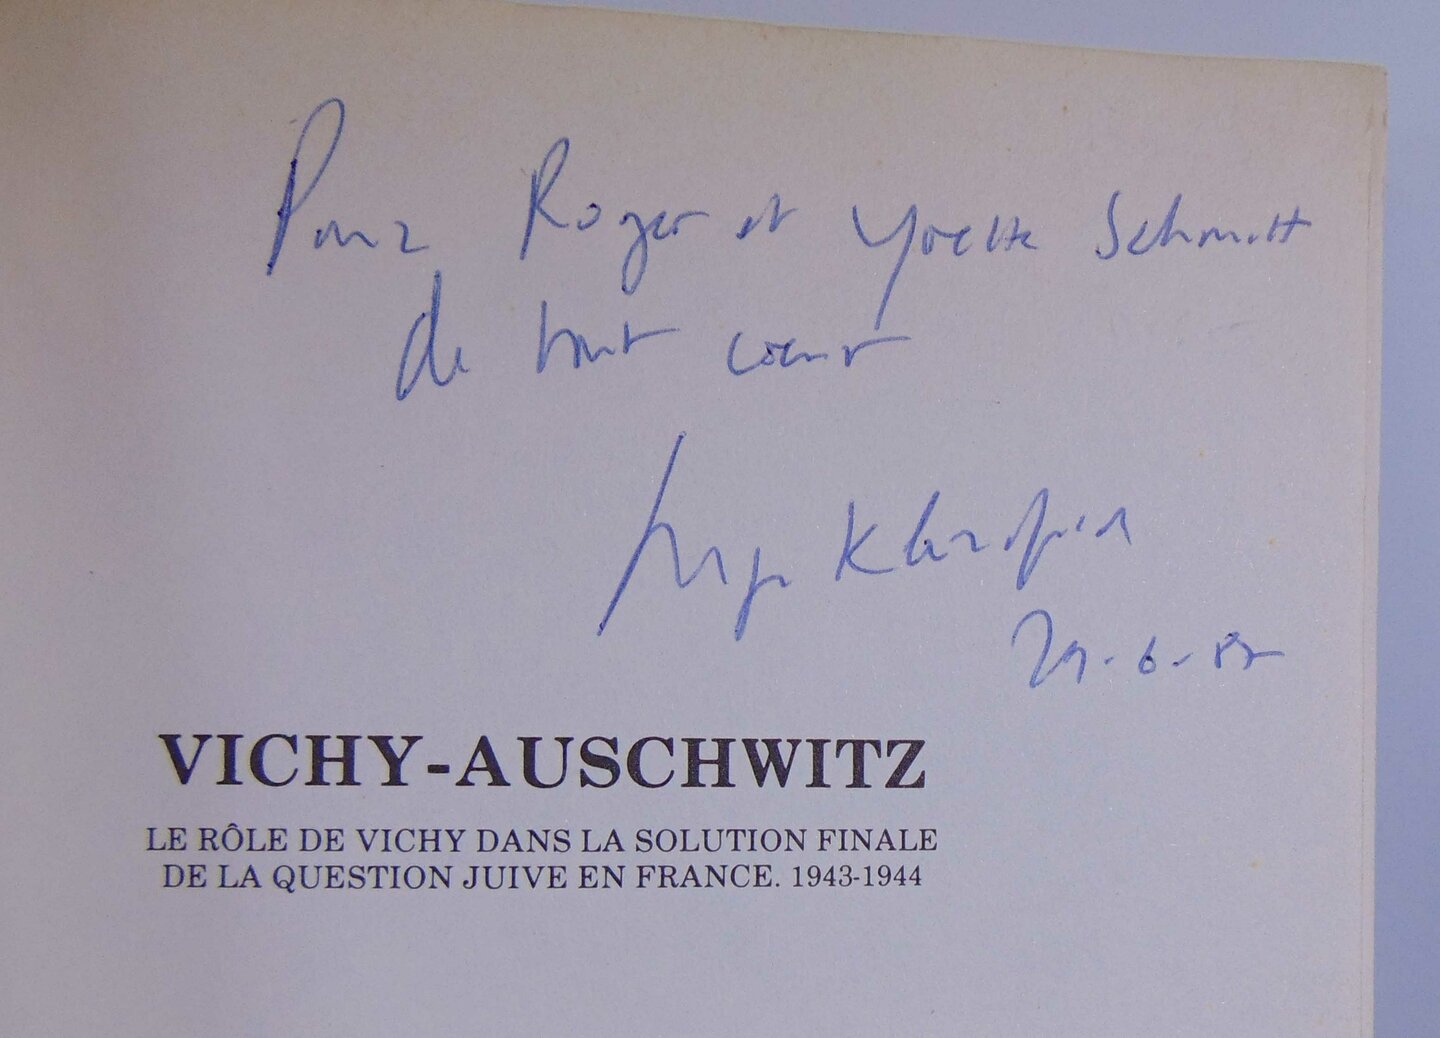 Pour Roger et Yvette Schmitt
de tout coeur
Serge Klarsfeld
29-6-87
VICHY-AUSCHWITZ
LE RÔLE DE VICHY DANS LA SOLUTION FINALE
DE LA QUESTION JUIVE EN FRANCE. 1943-1944